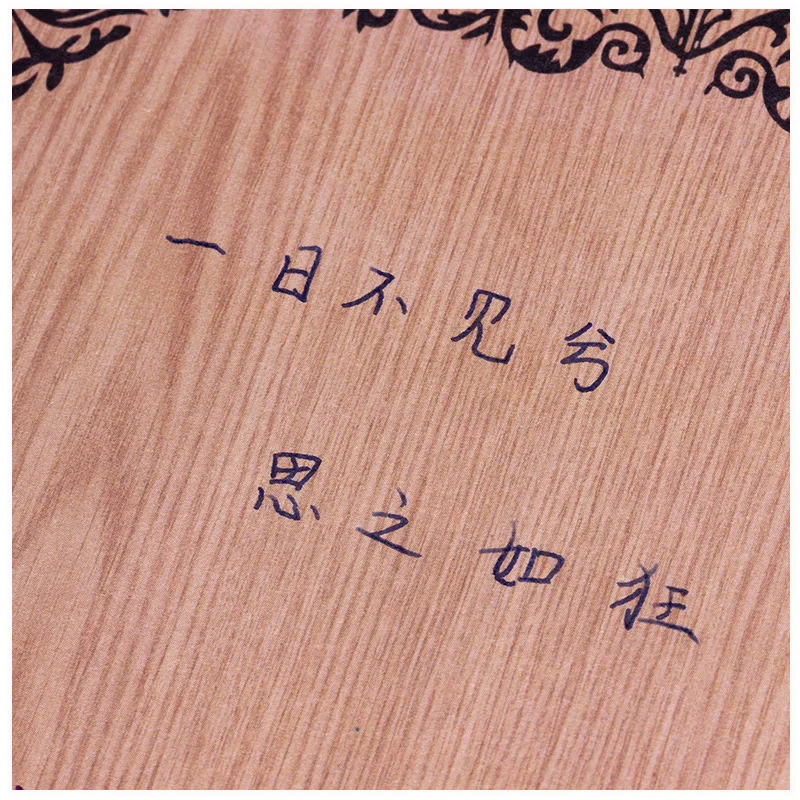 一日不见兮
思之如狂